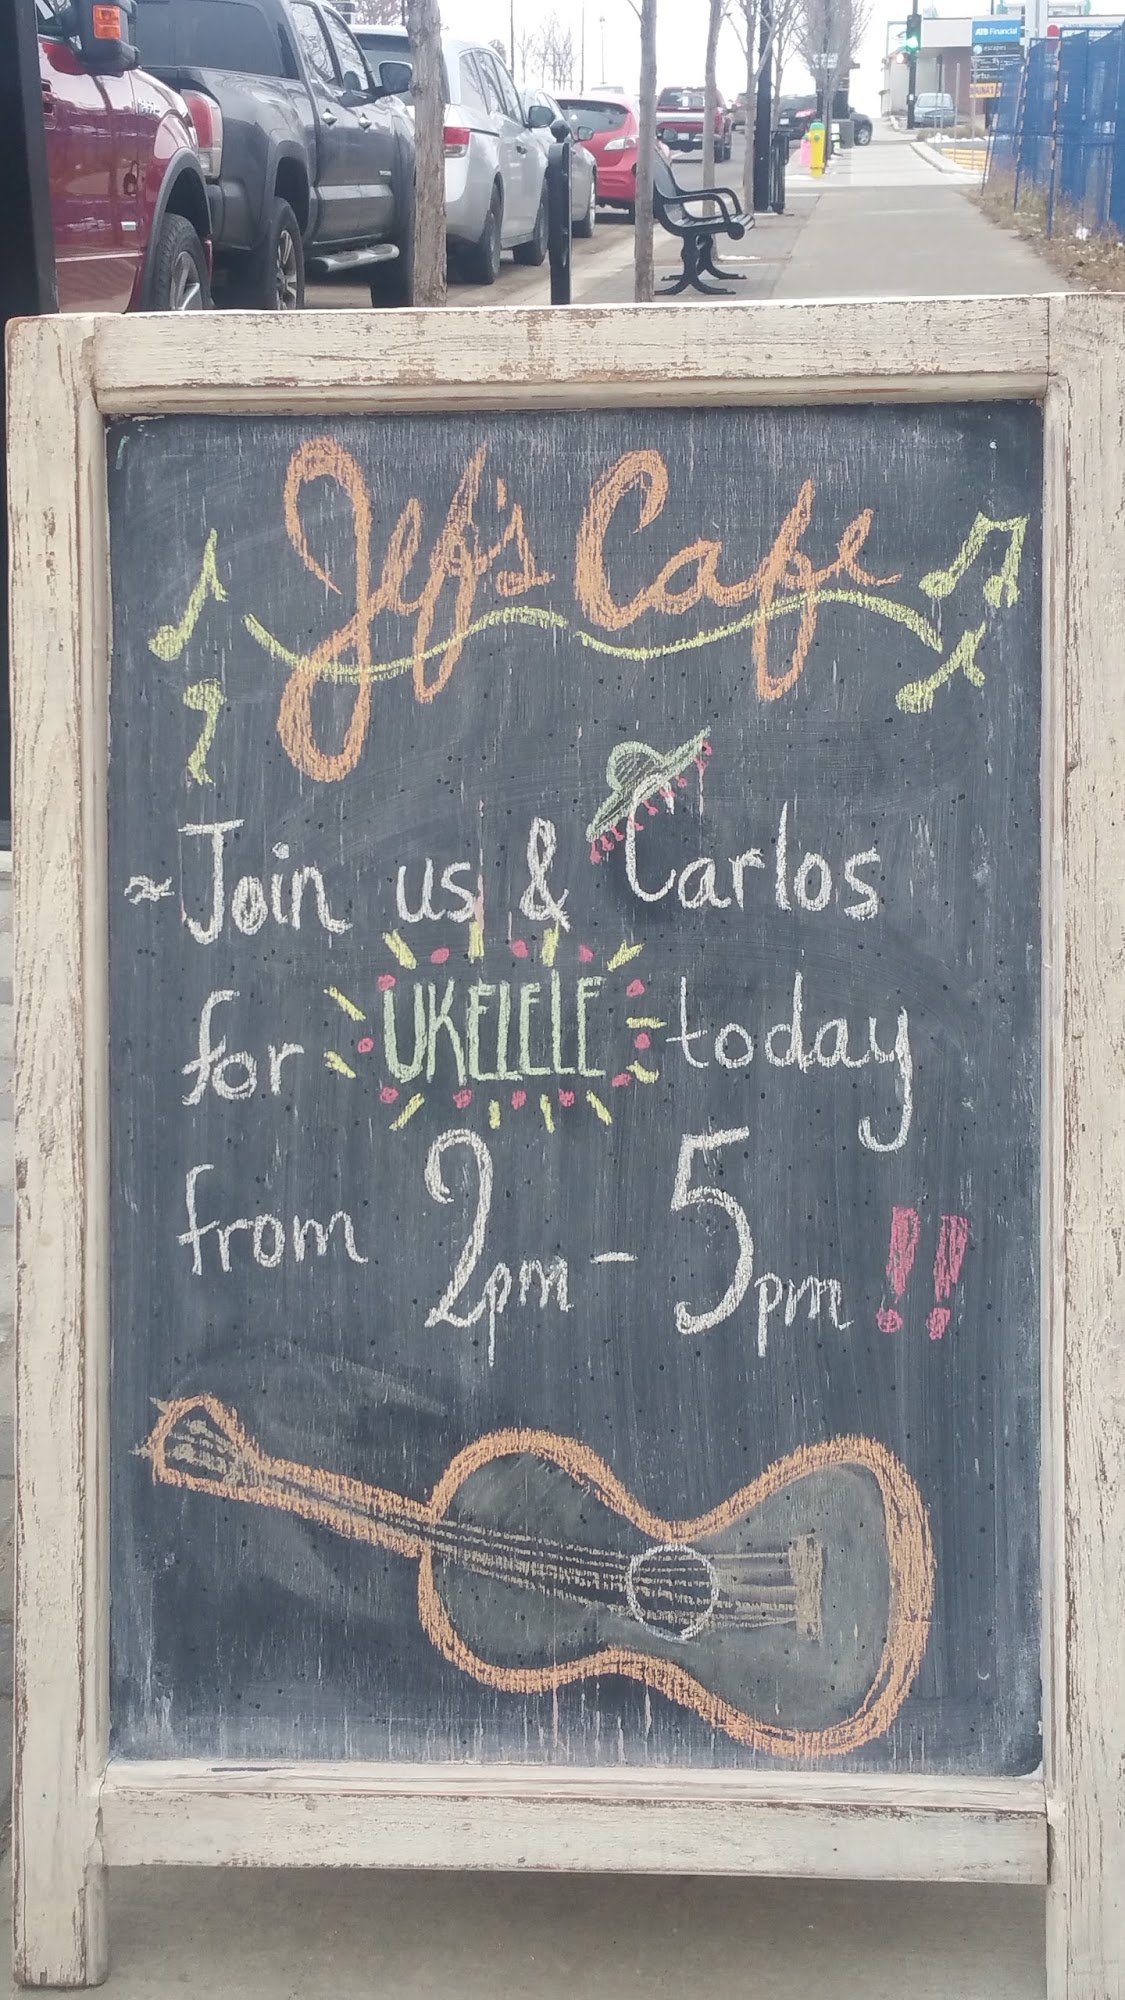 ATB Financial
Jef's Cafe
~Join us & Carlos
for UKELELE today
from 2pm - 5pm !!